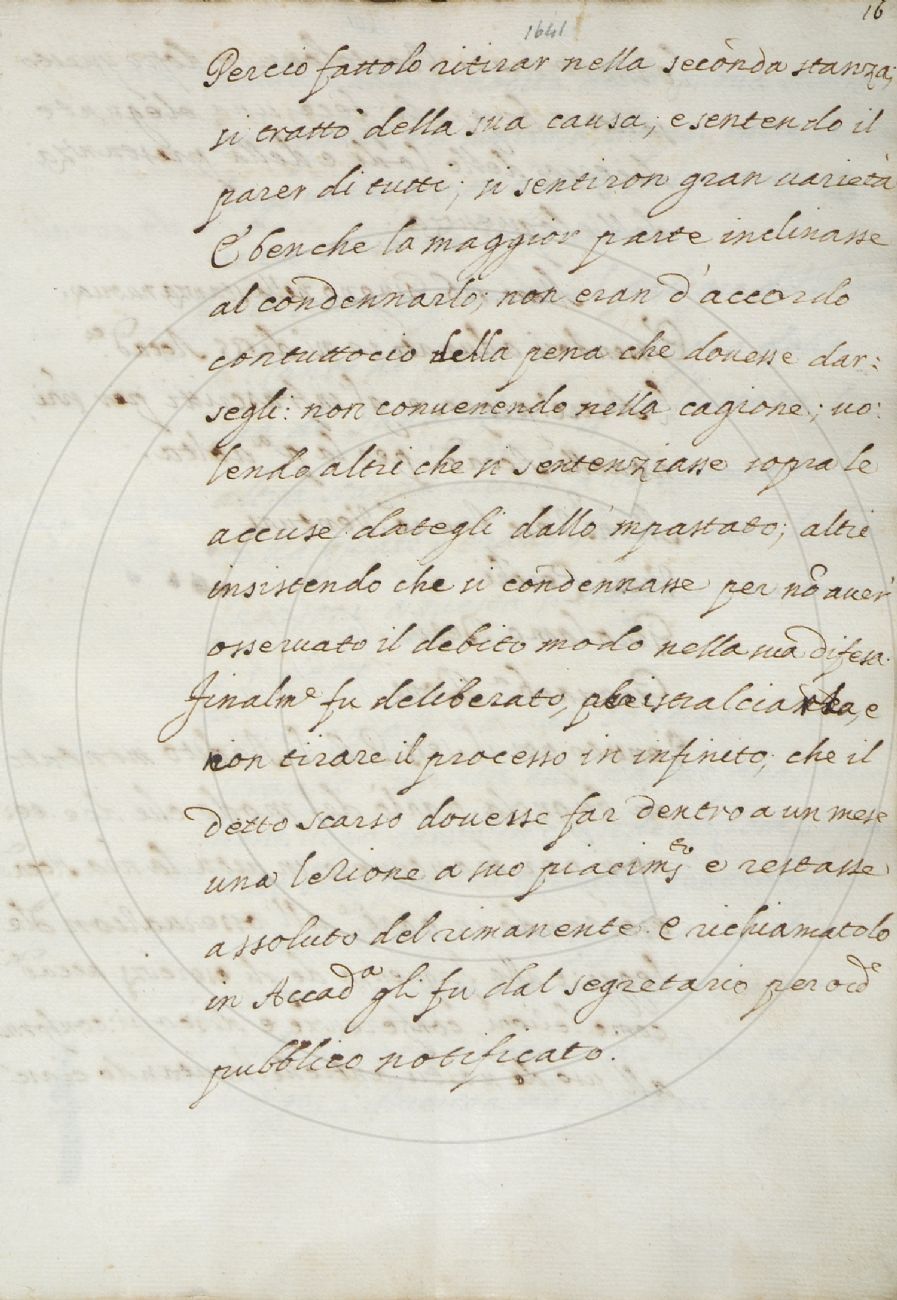 16
1641
Percio fattolo ritirar nella seconda stanza;
si trattò della sua causa; e sentendo il
parer di tutti; si sentiron gran varietà
E benche la maggior parte inclinasse
al condennarlo; non eran d'accordo
contuttocio della pena che dovesse dar:
segli: non convenendo nella cagione; vo:
lendo altri che si sentenziasse sopra le
accuse dategli dallo 'mpastato; altri
insistendo che si condennasse per nõ aver
osservato il debito modo nella sua difesa.
Finalm.e fu deliberato, e
non tirare il processo in infinito; che il
detto scarso dovesse far dentro a un mese
una lezione a suo piacim.to e restasse
assoluto del rimanente. E richiamatolo
in Accad.a gli fu dal segretario per ord.e
pubblico notificato.